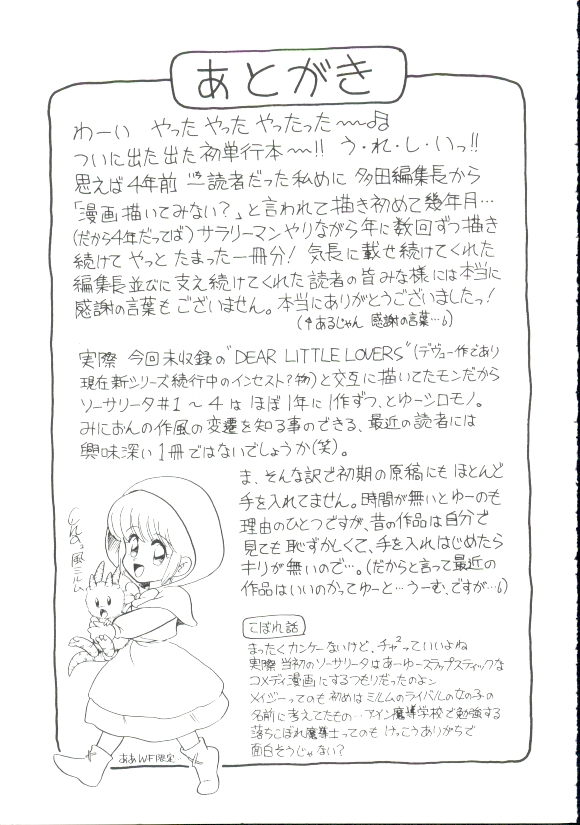 あとがき
わーい やった やった やったった〜〜♫
ついに出た出た初単行本〜〜!! う・れ・し・いっ!!
思えば4年前 一読者だった私めに 多田編集長から
「漫画描いてみない?」と言われて描き初めて幾年月…
(だから4年だってば) サラリーマンやりながら年に数回ずつ描き
続けて やっと たまった一冊分! 気長に載せ続けてくれた
編集長並びに支え続けてくれた読者の皆みな様には本当に
感謝の言葉もございません。本当にありがとうございましたっ!
(↑あるじゃん 感謝の言葉…6)
実際 今回未収録の"DEAR LITTLE LOVERS"(デヴュー作であり
現在新シリーズ続行中のインセスト?物)と交互に描いてたモンだから
ソーサリータ#1〜4は ほぼ1年に1作ずつ、とゆーシロモノ。
みにおんの作風の変遷を知る事のできる、最近の読者には
興味深い1冊ではないでしょうか(笑)。
ま、そんな訳で初期の原稿にも ほとんど
手を入れてません。時間が無いとゆーのも
理由のひとつですが、昔の作品は自分で
見ても恥ずかしくて、手を入れはじめたら
キリが無いので…。(だからと言って最近の
作品はいいのかってゆーと…うーむ、ですが…6)
風ミルム
こぼれ話
まったくカンケーないけど、チャ²っていいよね
実際 当初のソーサリータはあーゆースラップスティックな
コメディ漫画にするつもりだったのよン
メイジーってのも 初めは ミルムのライバルの女の子の
名前に考えてたもの…アイン魔導学校で勉強する
落ちこぼれ魔導士ってのも けっこうありがちで
面白そうじゃない?
ああWF限定